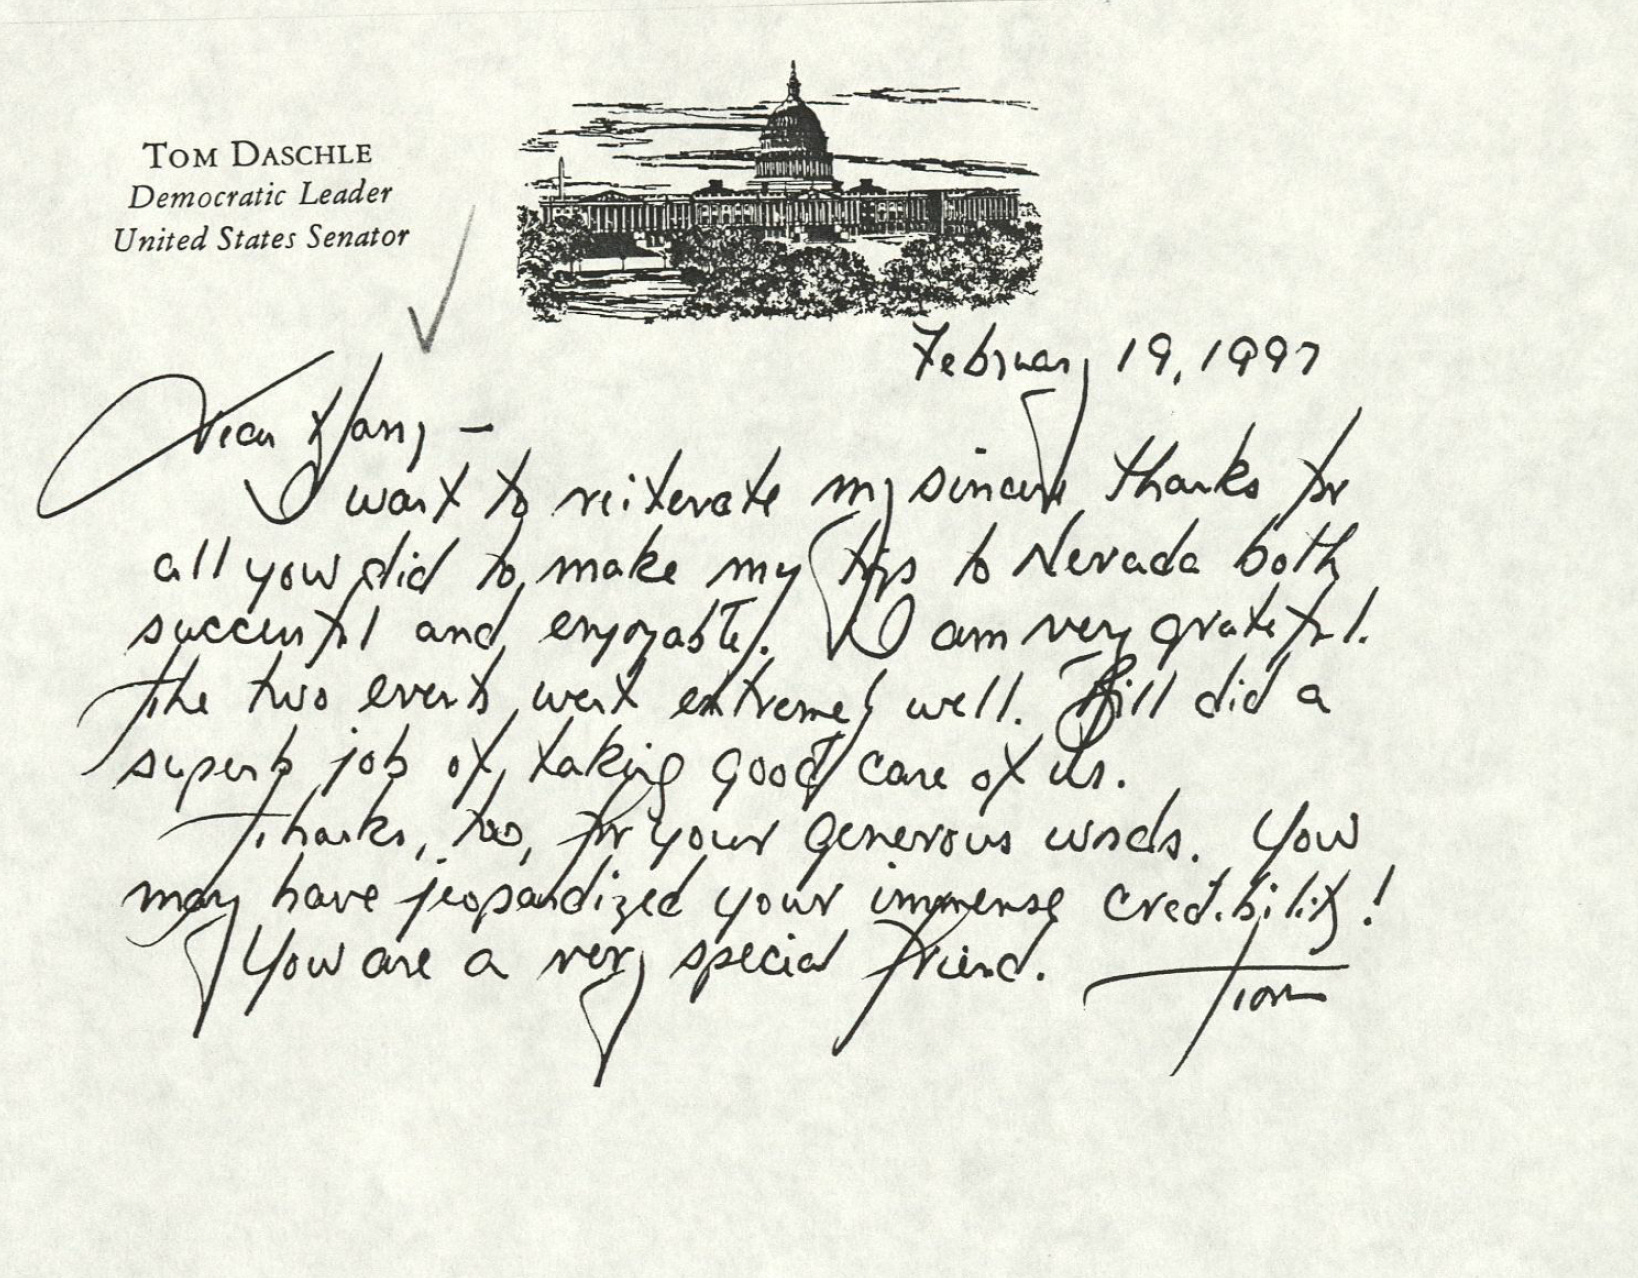 TOM DASCHLE
Democratic Leader
United States Senator
February 19, 1997
Dear Harry –
I want to reiterate my sincere thanks for
all you did to make my trips to Nevada both
successful and enjoyable. I am very grateful.
The two events went extremely well. Bill did a
superb job of taking good care of us.
Thanks, too, for your generous words. You
may have jeopardized your immense credibility!
You are a very special friend. Tom